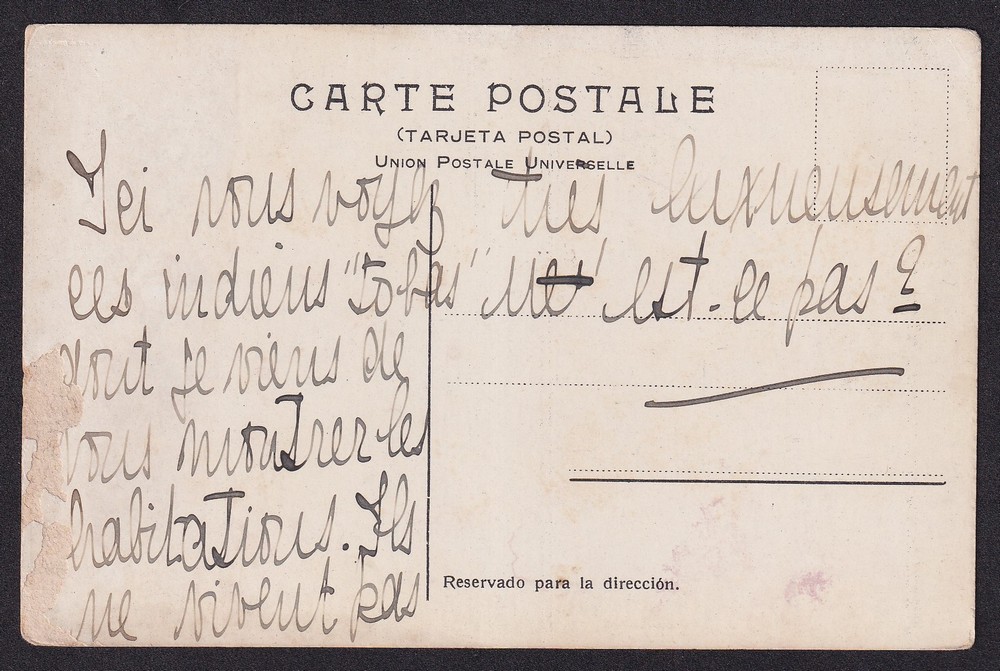 CARTE POSTALE
(TARJETA POSTAL)
UNION POSTALE UNIVERSELLE
Ici vous voyez
ces indiens "tobas"
dont je viens de
vous montrer les
habitations. Ils
ne vivent pas
très luxueusement
n'est-ce pas ?
Reservado para la dirección.